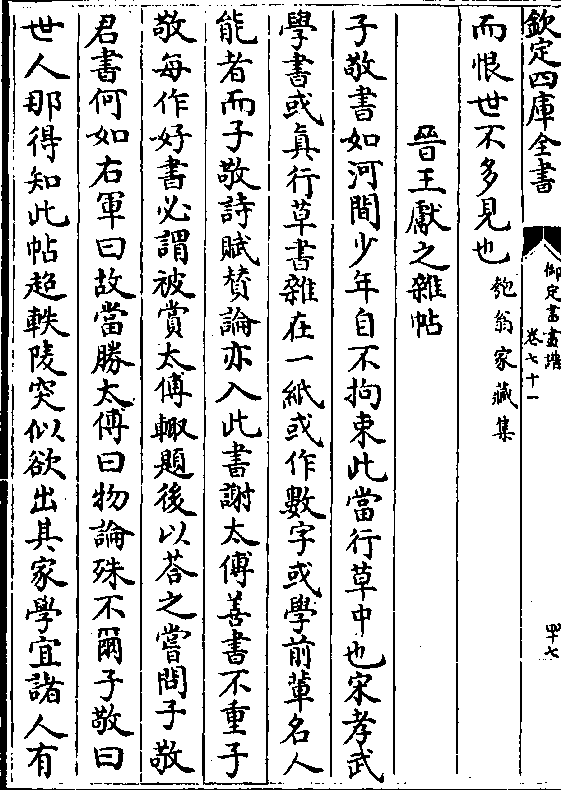 欽定四庫全書
御定書畫譜
卷七十一
四十七
而恨世不多見也匏翁家藏集
晉王獻之雜帖
子敬書如河間少年自不拘束此當行草中也宋孝武
學書或真行草書雜在一紙或作數字或學前輩名人
能者而子敬詩賦賛論亦入此書謝太傅善書不重子
敬每作好書必謂被賞太傅輙題後以荅之嘗問子敬
君書何如右軍曰故當勝太傅曰物論殊不爾子敬曰
世人那得知此帖超軼陵突似欲出其家學宜諸人有